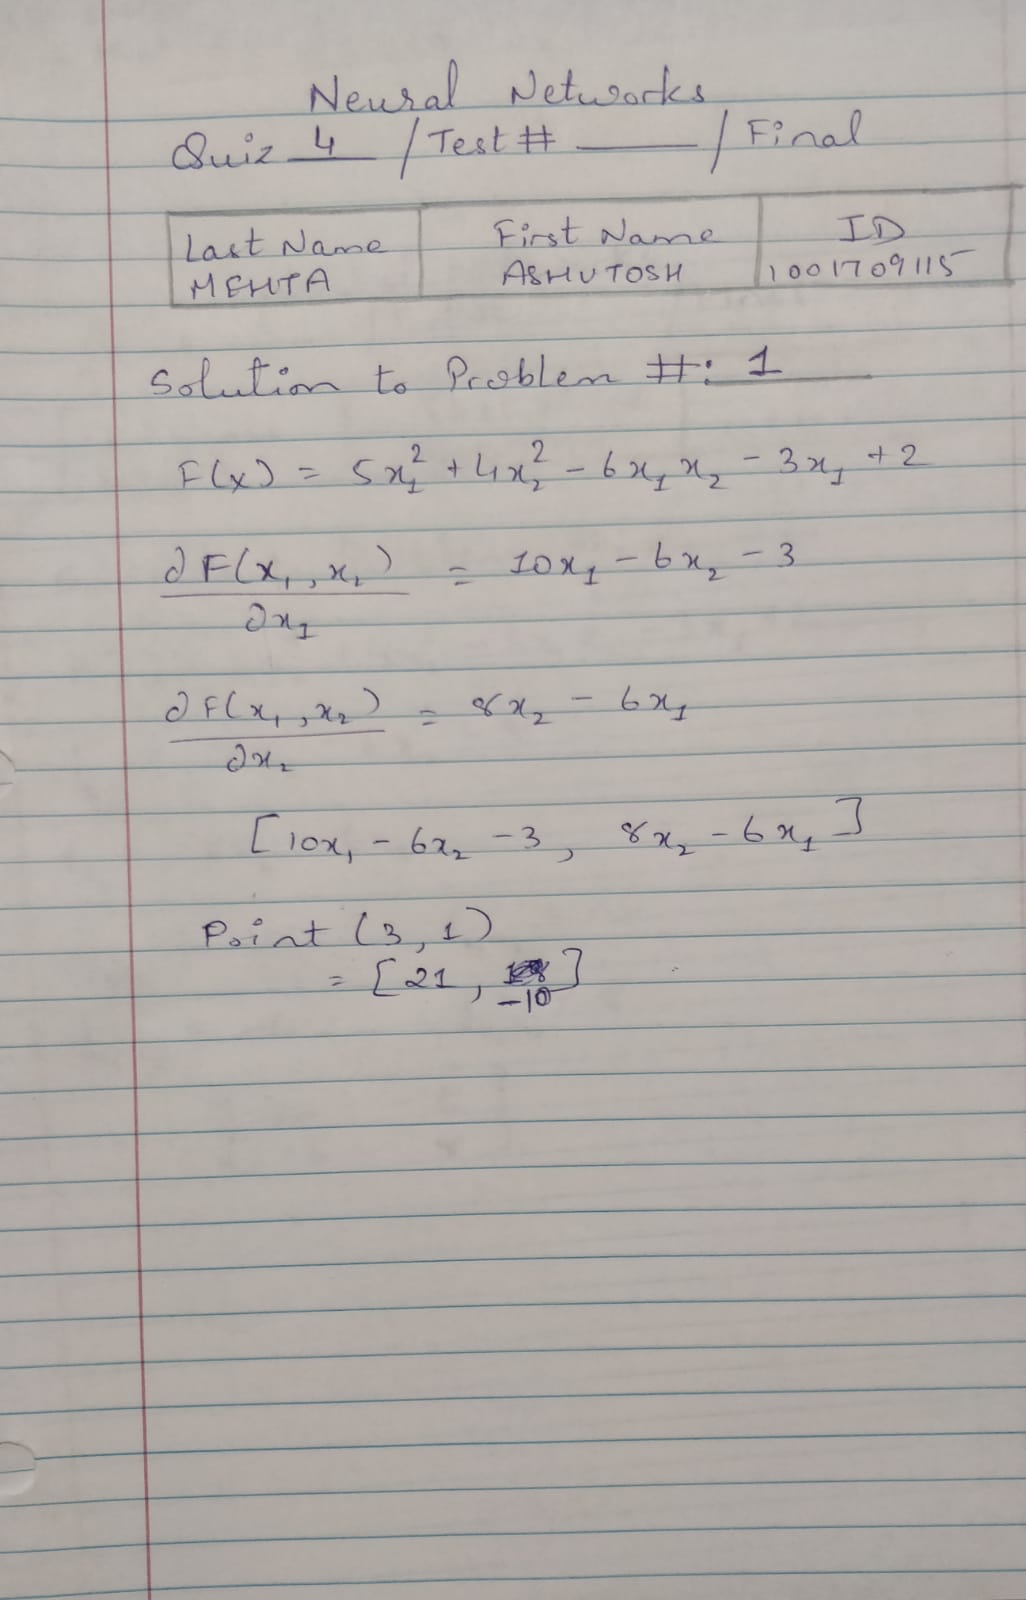 Neural Networks
Quiz 4 / Test # ____ / Final
Last Name First Name ID
MEHTA ASHUTOSH 1001709115
Solution to Problem #: 1
F(x) = 5x₁² + 4x₂² - 6x₁x₂ - 3x₁ + 2
∂F(x₁,x₂) = 10x₁ - 6x₂ - 3
∂x₁
∂F(x₁,x₂) = 8x₂ - 6x₁
∂x₂
[10x₁ - 6x₂ - 3, 8x₂ - 6x₁]
Point (3,1)
= [21, -10]